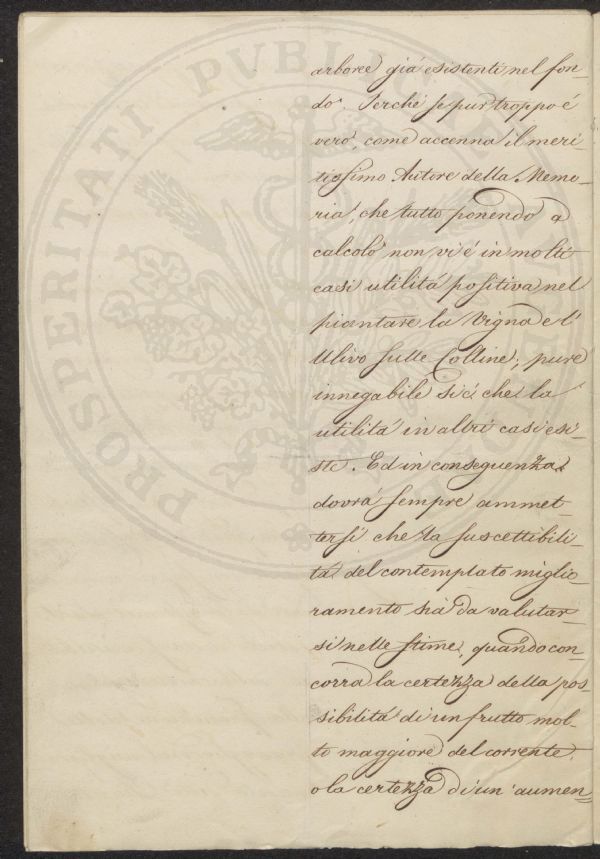 arboree già esistenti nel fon-
do. Perchè se pur troppo è
vero, come accenna il meri-
tissimo Autore della Memo-
ria, che tutto ponendo a
calcolo non vi è in molti
casi utilità positiva nel
piantare la Vigna e l'
Ulivo sulle Colline; pure
innegabile si è che la
utilità in altri casi esi-
ste. Ed in conseguenza
dovrà sempre ammet-
tersi che la suscettibili-
tà del contemplato miglio-
ramento sia da valutar-
si nelle stime, quando con-
corra la certezza della pos-
sibilità di un frutto mol-
to maggiore del corrente,
o la certezza di un' aumen=
PROSPERITATI PVBLICAE